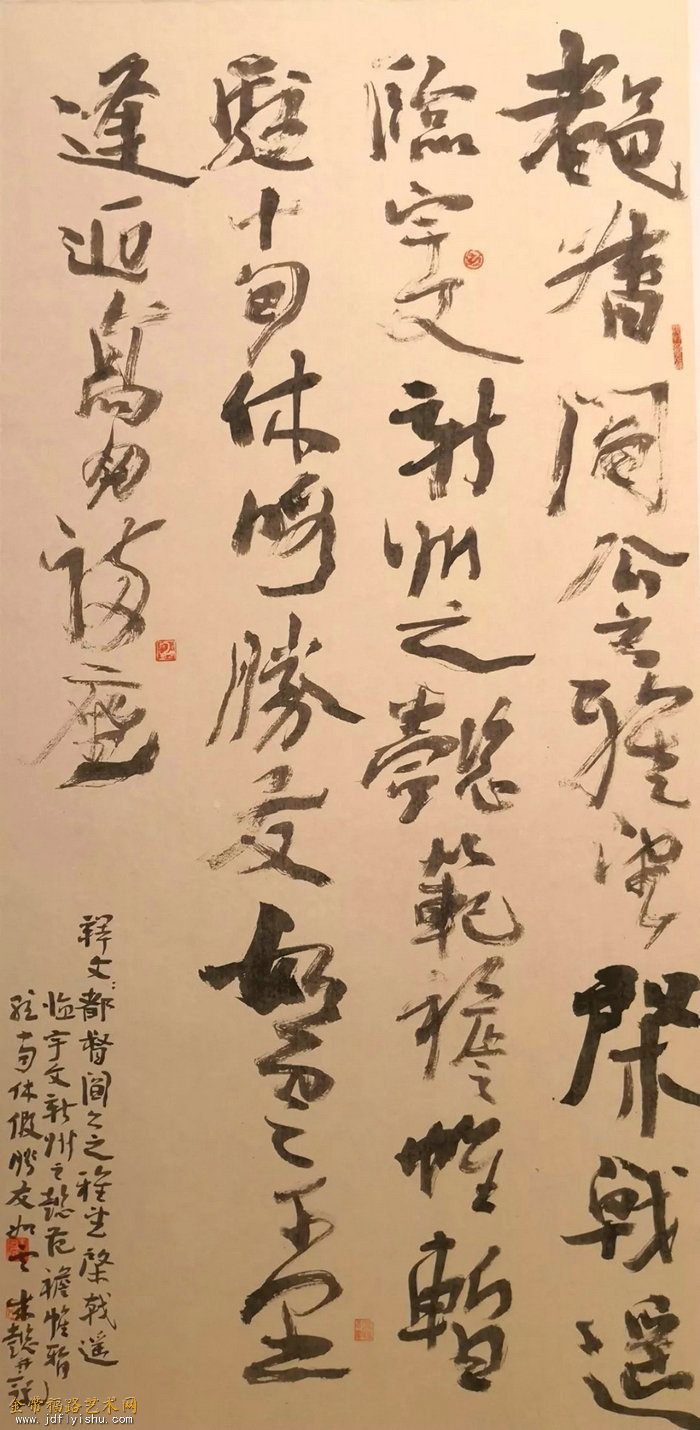 都督閻公之雅望棨戟遥
臨宇文新州之懿範襜帷暫
駐十旬休假勝友如雲千里
逢迎高朋滿座
釋文:都督阎公之雅望棨戟遥
临宇文新州之懿范襜帷暂
驻十旬休假胜友如云
金帝福路艺术网
www.jdflyishu.com